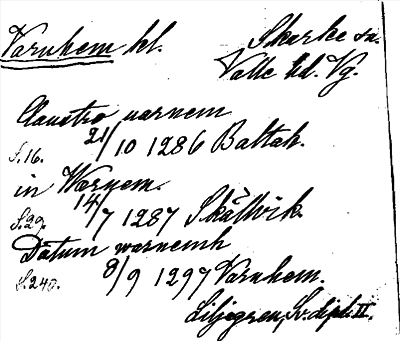 Varnhem kl.
Skarke sn.
Valle hd. Vg.
Claustro uarnem
S. 16. 21/10 1286 Baltak.
in Warnem.
S. 29. 14/7 1287 Skällvik.
Datum warnemh
S. 240. 8/9 1297 Varnhem.
Liljegren, Sv. dipl. II.